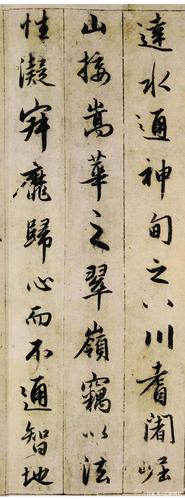 達水通神甸之八川耆闍崛
山接嵩華之翠嶺竊以法
性凝寂靡歸心而不通智地